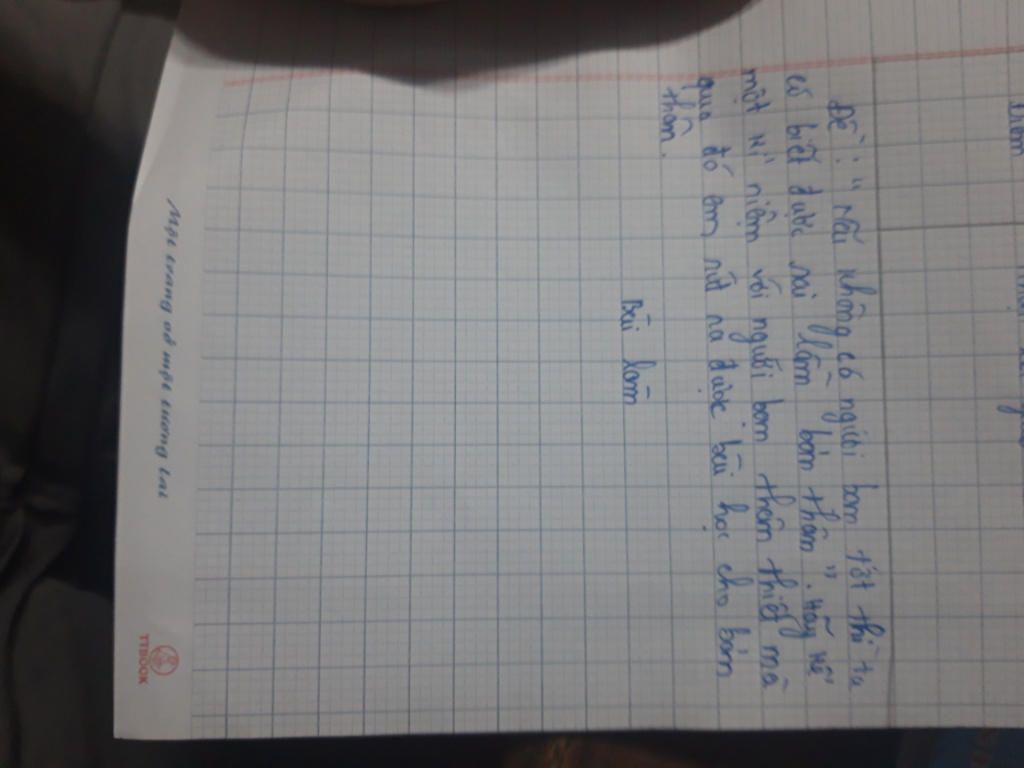 Đề : " Nếu không có người bạn tốt thì ta
có biết được sai lầm bản thân ". Hãy kể
một kỉ niệm với người bạn thân thiết mà
qua đó em rút ra được bài học cho bản
thân.
Bài làm
Một trang vở một tương lai
TTBOOK